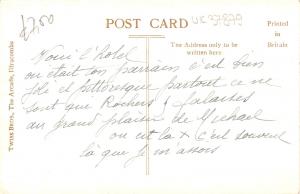 £7,50
POST CARD
UK 37899
Printed in Britain
The Address only to be written here
Twiss Bros., The Arcade, Ilfracombe
Voici l'hotel
ou était ton parrain c'est bien
joli et pittoresque partout ce ne
sont que Rochers & falaises
au grand plaisir de Michael
on est la & c'est souvent
là que je m'assois